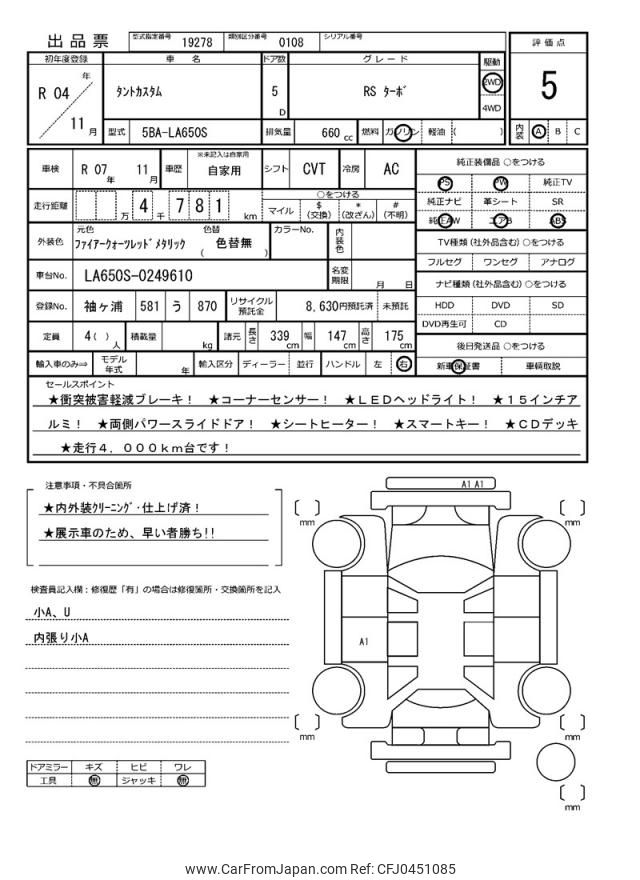 出品票 型式指定番号 19278 類別区分番号 0108 シリアル番号
初年度登録 車名 ドア数 グレード 駆動 評価点
R 04 年 11 月 タントカスタム 5 D RS ターボ 2WD 4WD 5
型式 5BA-LA650S 排気量 660 cc 燃料 ガソリン 軽油 ( ) 内装 A B C
車検 R 07 年 11 月 車歴 ※未記入は自家用 自家用 シフト CVT 冷房 AC 純正装備品 ○をつける
PS PW 純正TV
走行距離 万 4 千 7 8 1 km ○をつける マイル $ (交換) * (改ざん) # (不明) 純正ナビ 革シート SR
純正AW エアB ABS
外装色 元色 ファイアークォーツレッドメタリック 色替 ( 色替無 ) カラーNo. 内装色 TV種類 (社外品含む) ○をつける
フルセグ ワンセグ アナログ
車台No. LA650S-0249610 名変期限 月 日 ナビ種類 (社外品含む) ○をつける
登録No. 袖ヶ浦 581 う 870 リサイクル預託金 8,630円預託済 未預託 HDD DVD SD
DVD再生可 CD
定員 4( ) 人 積載量 kg 諸元 長さ 339 cm 幅 147 cm 高さ 175 cm 後日発送品 ○をつける
輸入車のみ⇒ モデル年式 年 輸入区分 ディーラー 並行 ハンドル 左 右 新車保証書 車輌取説
セールスポイント
★衝突被害軽減ブレーキ! ★コーナーセンサー! ★LEDヘッドライト! ★15インチア
ルミ! ★両側パワースライドドア! ★シートヒーター! ★スマートキー! ★CDデッキ
★走行4,000km台です!
注意事項・不具合箇所
★内外装クリーニング・仕上げ済!
★展示車のため、早い者勝ち!!
検査員記入欄:修復歴「有」の場合は修復箇所・交換箇所を記入
小A、U
内張り小A
ドアミラー キズ ヒビ ワレ
工具 無 ジャッキ 無
A1 A1
mm
mm
A1
mm
mm
mm
www.CarFromJapan.com Ref: CFJ0451085